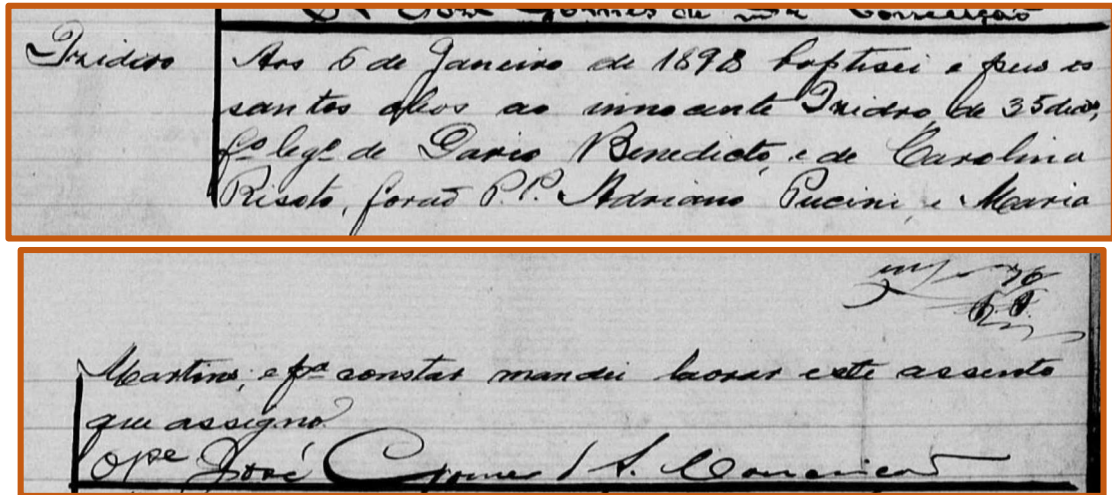 José Gomes de
Izidoro
Aos 6 de Janeiro de 1898 baptisei e puz os
santos oleos ao innocente Izidro, de 35 dias,
fº legº de Dario Benedicto, e de Carolina
Risoto, forão P.P. Adriano Pucini, e Maria
Martins, e pª constar mandei lavrar este assento
que assigno.
O Pe José Gomes